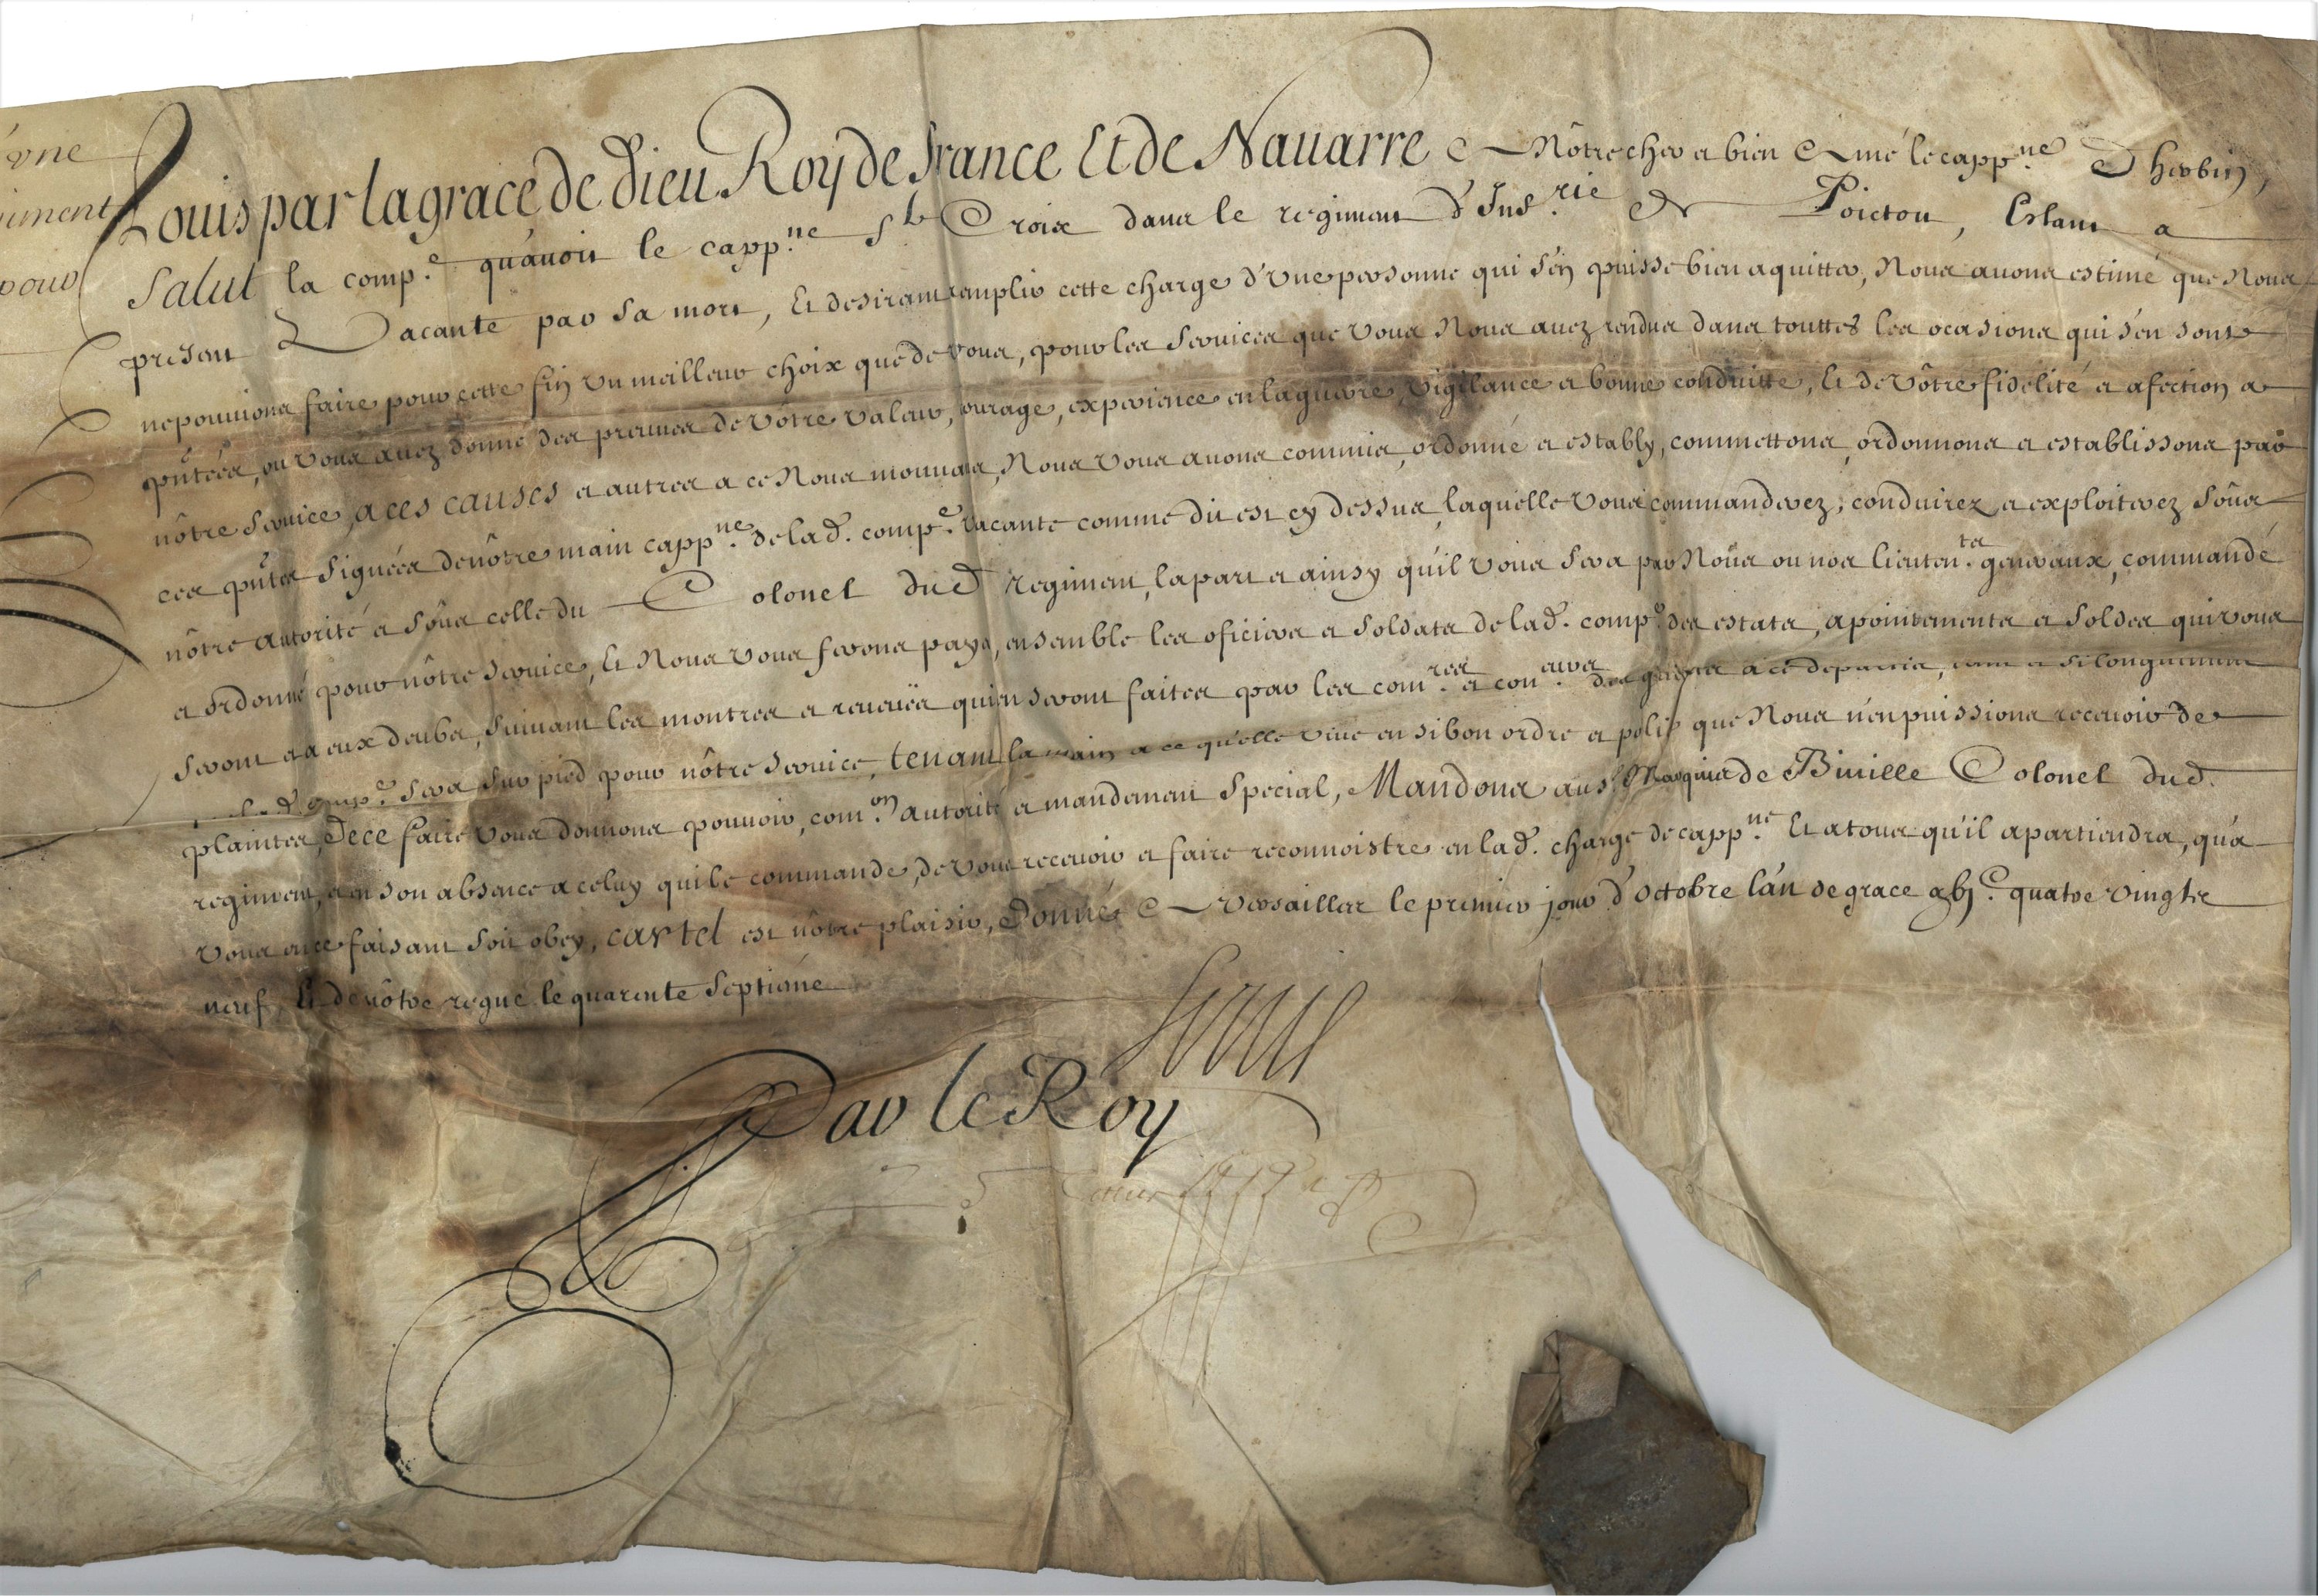 vne
iment
pour
Louis par la grace de Dieu Roy de france Et de Nauarre A Nôtre cher et bien Amé le capp.ne Dherbin,
Salut la comp.e qu'auoit le capp.ne S.te Croix dans le regiment d'Inf.rie de Poictou, Estant a
present Vacante par sa mort, Et desirant remplir cette charge d'vne personne qui s'en puisse bien aquitter, Nous auons estimé que Nous
ne pouuions faire pour cette fin vn meilleur choix que de vous, pour les seruices que vous Nous auez rendus dans touttes les ocasions qui s'en sont
pñtées, ou vous auez donné des preuues de vôtre valeur, courage, experience en la guerre, vigilance et bonne conduitte, Et de vôtre fidelité et afection a
nôtre seruice, a ces causes et autres a ce Nous mouuans, Nous vous auons commis, ordonné et estably, commettons, ordonnons et establissons par
ces pñtes signées de nôtre main capp.ne de lad. comp.e vacante comme dit est cy dessus, laquelle vous commanderez, conduirez et exploiterez soûs
nôtre autorité et soûs celle du Colonel dud regiment, la part et ainsy qu'il vous sera par Noûs ou nos lieuten.ts generaux, commandé
et ordonné pour nôtre seruice, Et Nous vous ferons payer, ensemble les oficiers et soldats de lad. comp.e des estats, apointements et soldes qui vous
seront et a eux deubs, suiuant les montres et reueües qui en seront faites par les com.res et con.eurs des guerres a ce departis, tant et si longuement
que lad comp.e sera sur pied pour nôtre seruice, tenant la main a ce qu'elle viue en si bon ordre et police que Nous n'en puissions receuoir de
plaintes, De ce faire vous donnons pouuoir, com.on autorité et mandement Special, Mandons au S. Marquis de Biuille Colonel dud.
regiment, et en son absence a celuy qui le commande, de vous receuoir et faire reconnoistre en lad. charge de capp.ne Et a tous qu'il apartiendra, qu'a
vous en ce faisant soit obey, car tel est nôtre plaisir, Donné A Versailles le premier jour d'octobre l'an de grace gbj.c quatre vingts
neuf, Et de nôtre regne le quarente Septiéme
Louis
Par le Roy